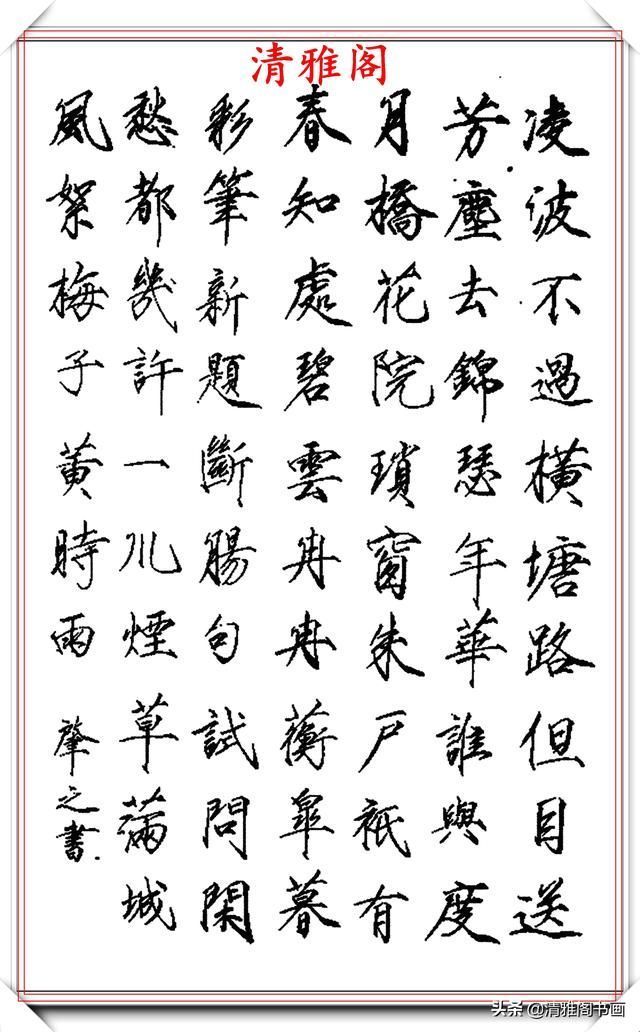 清雅阁
凌波不過橫塘路但目送
芳塵去錦瑟年華誰與度
月橋花院瑣窗朱戶祇有
春知處碧雲冉冉蘅皋暮
彩筆新題斷腸句試問閑
愁都幾許一川煙草滿城
風絮梅子黃時雨
肇之書
头条 @清雅阁书画